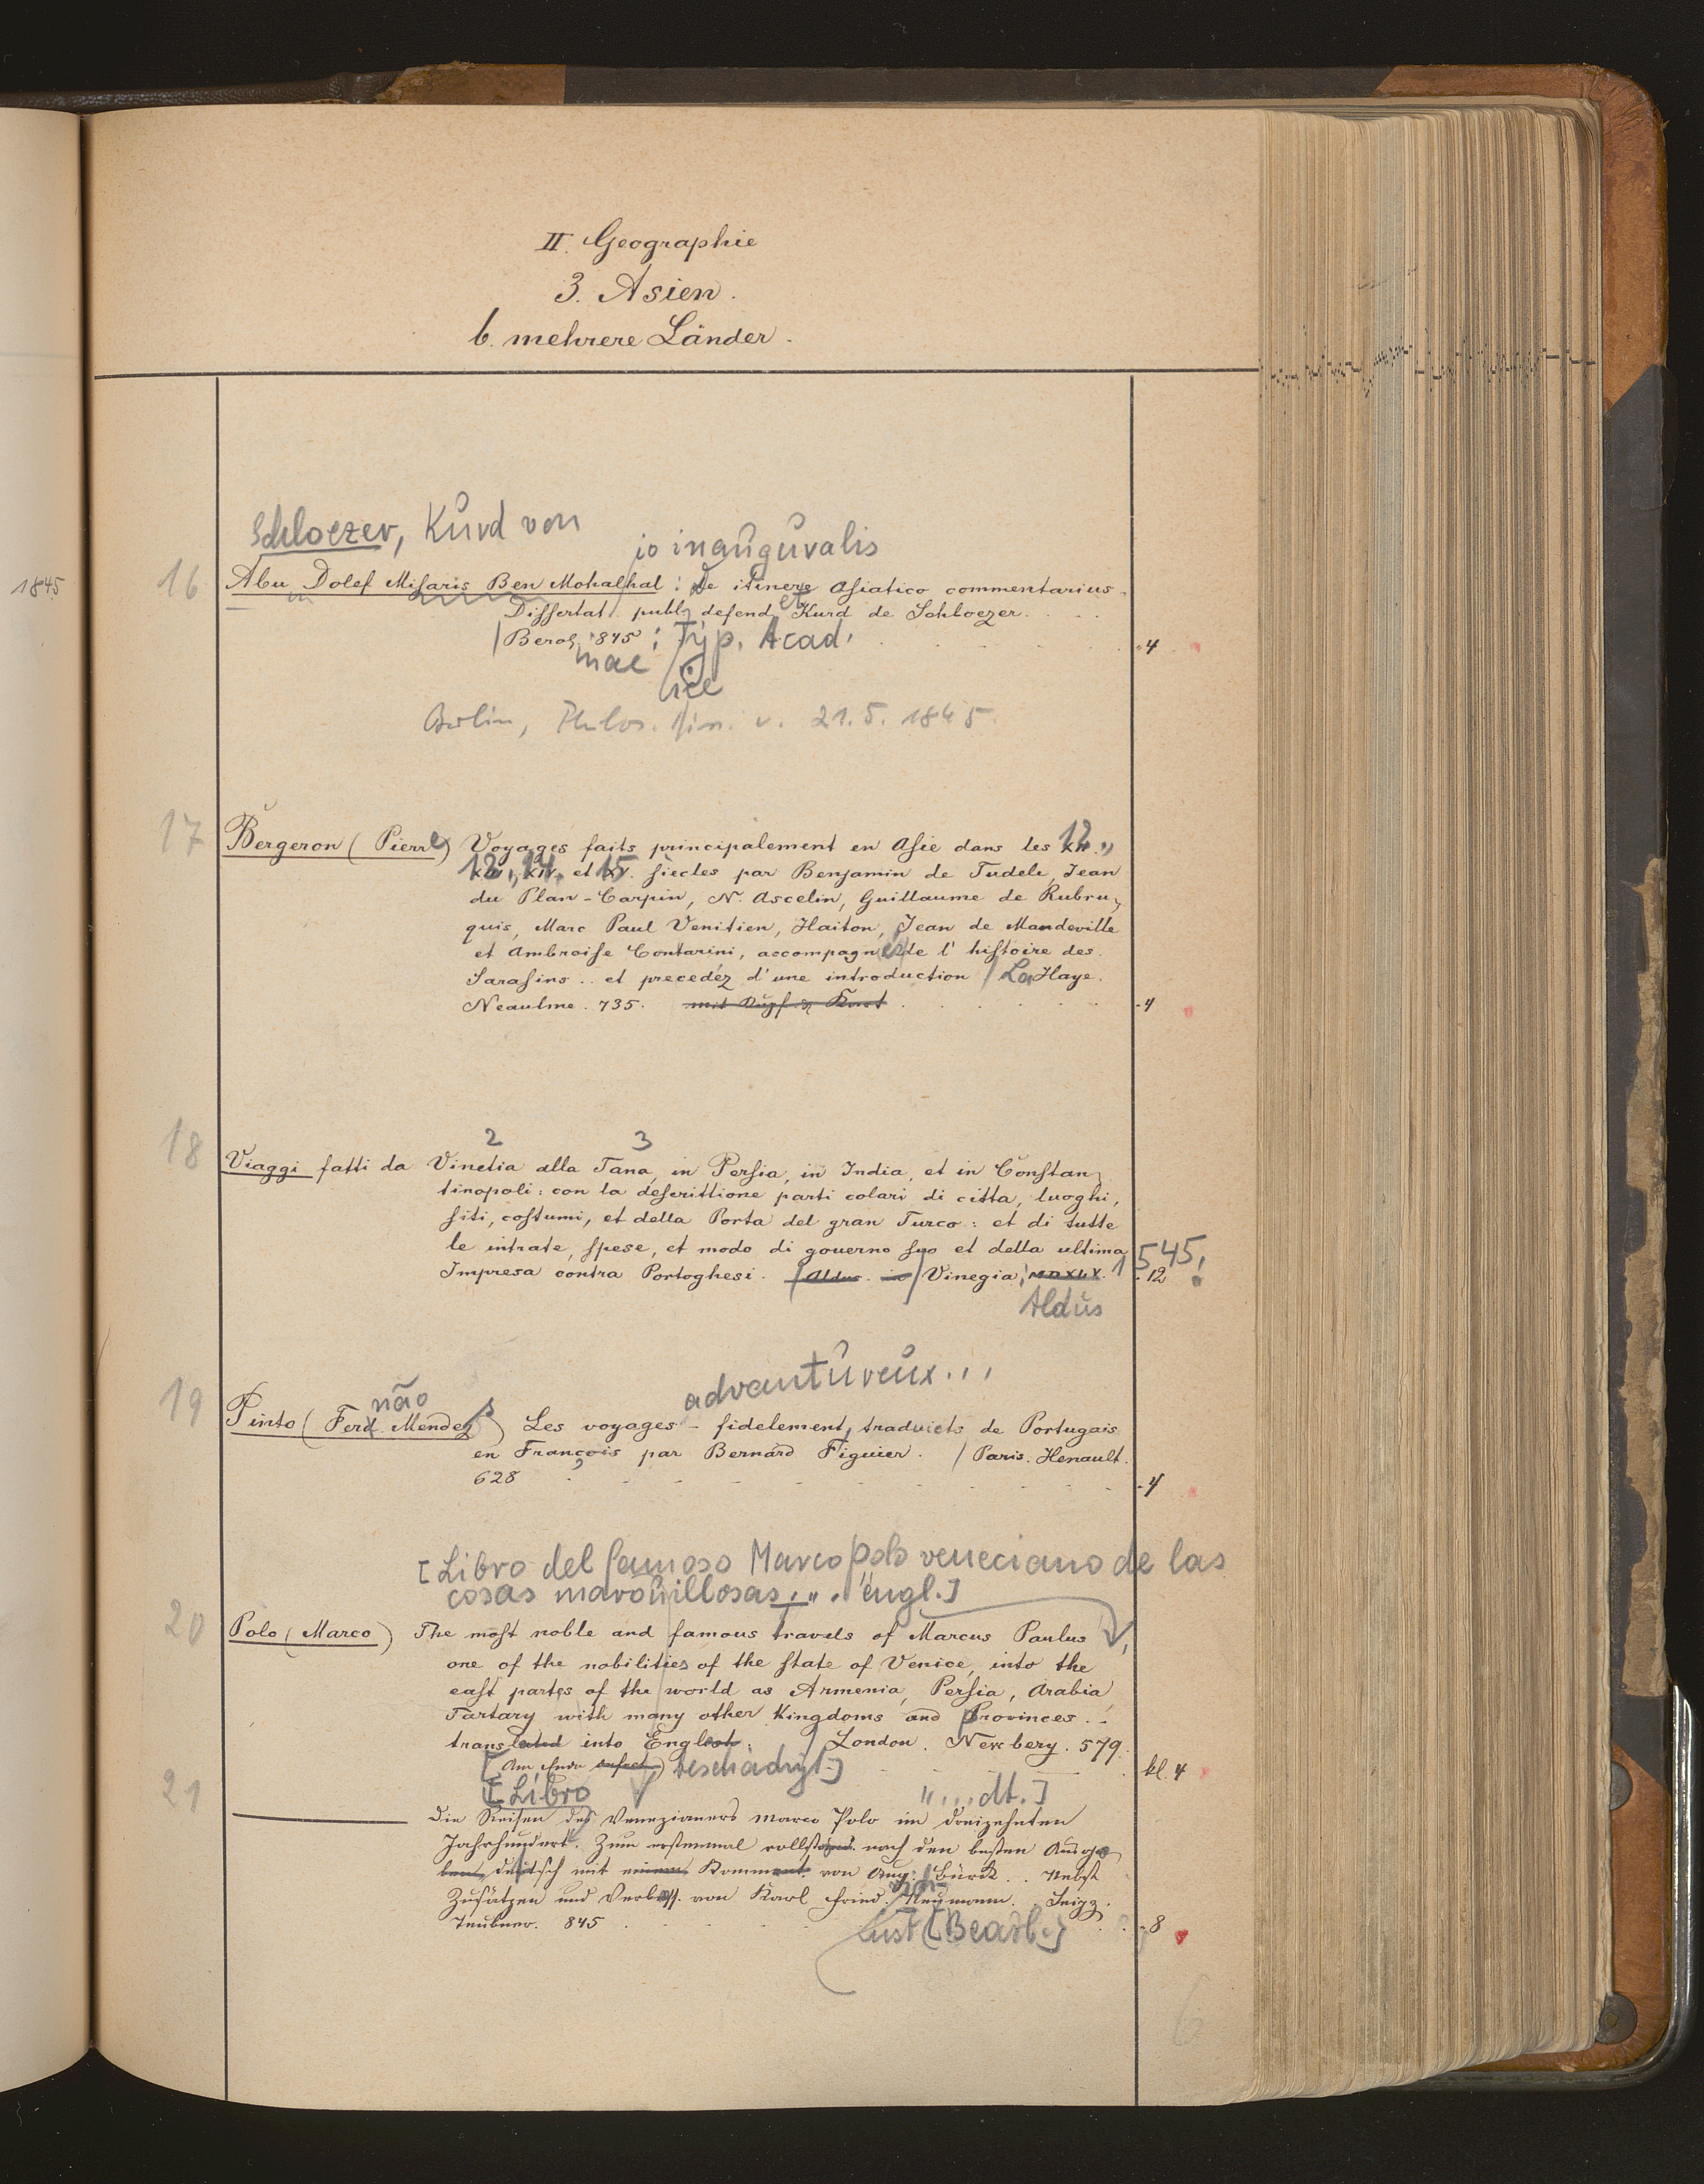 II. Geographie
3. Asien.
b. mehrere Länder.
1845
Schloezer, Kurd von
io inauguralis
16 Abu Dolef Misaris Ben Mohalhal: De itinere Asiatico commentarius.
Dissertat. publ. defend. et Kurd de Schloezer.
Berol. 1845: Typ. Acad.
4
nae
icae
Berlin, Philos. Diss. v. 21.5.1845.
17 Bergeron (Pierre) Voyages faits principalement en Asie dans les XII. 12.,
XIII, 13., XIV. 14. et XV. 15. siècles par Benjamin de Tudele, Jean
du Plan-Carpin, N. Ascelin, Guillaume de Rubru-
quis, Marc Paul Venitien, Haiton, Jean de Mandeville
et Ambroise Contarini, accompagnez de l'histoire des
Sarasins .. et precedéz d'une introduction / La Haye.
Neaulme. 735. mit Kupf. & Kart
4
2 3
18 Viaggi fatti da Vinetia alla Tana, in Persia, in India, et in Constan-
tinopoli: con la descrittione particolari di citta, luoghi,
siti, costumi, et della Porta del gran Turco: et di tutte
le intrate, spese, et modo di governo suo et della ultima
Impresa contra Portoghesi. Aldus. Vinegia: MDXLV. 1545.
12
Aldus
adventureux...
19 Pinto (Ferd. não Mendez) Les voyages - fidelement traduicts de Portugais
en François par Bernard Figuier. / Paris. Henault.
628
4
[Libro del famoso Marco polo veneciano de las
cosas maravillosas,... engl.]
20 Polo (Marco) The most noble and famous travels of Marcus Paulus,
one of the nobilities of the state of Venice, into the
east partes of the world as Armenia, Persia, Arabia,
Tartary with many other Kingdoms and Provinces..
translated into English. / London. Newbery. 579.
[Am Ende beschädigt.]
kl. 4
[Libro "...dt.]
21 Die Reisen des Venezianers Marco Polo im dreizehnten
Jahrhundert. Zum erstenmal vollständ. nach den besten Ausga-
ben deutsch mit einem Komment. von Aug. Bürck .. Nebst
Zusätzen und Verbess. von Karl Fried. Neumann. Leipz.
Teubner. 845
8
[Bearb.]
6